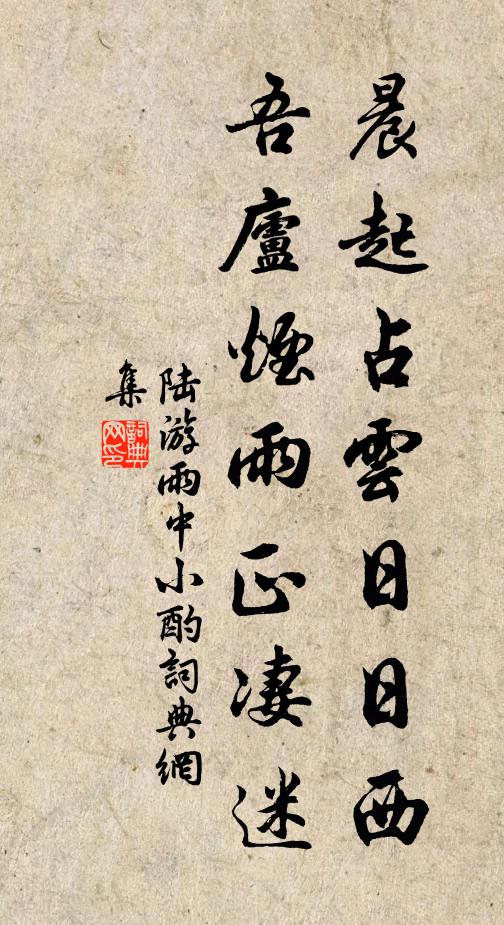 晨起占雲日日西
吾廬煙雨正凄迷
陸游雨中小酌詞典網
集
詞典
网印